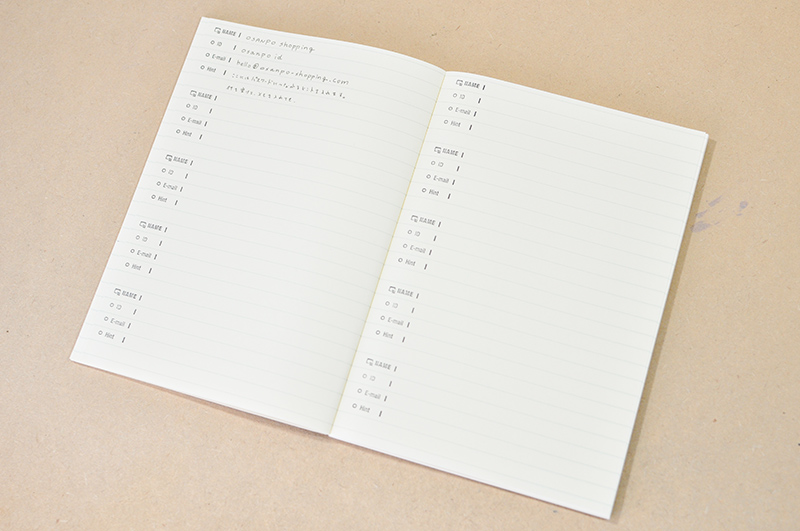 NAME OSANPO shopping
ID osanpo id
E-mail hello@osanpo-shopping.com
Hint ここにパスワードのヒントをかきとめます。
NAME
ID
E-mail
Hint
NAME
ID
E-mail
Hint
NAME
ID
E-mail
Hint
NAME
ID
E-mail
Hint
NAME
ID
E-mail
Hint
NAME
ID
E-mail
Hint
NAME
ID
E-mail
Hint
NAME
ID
E-mail
Hint
NAME
ID
E-mail
Hint